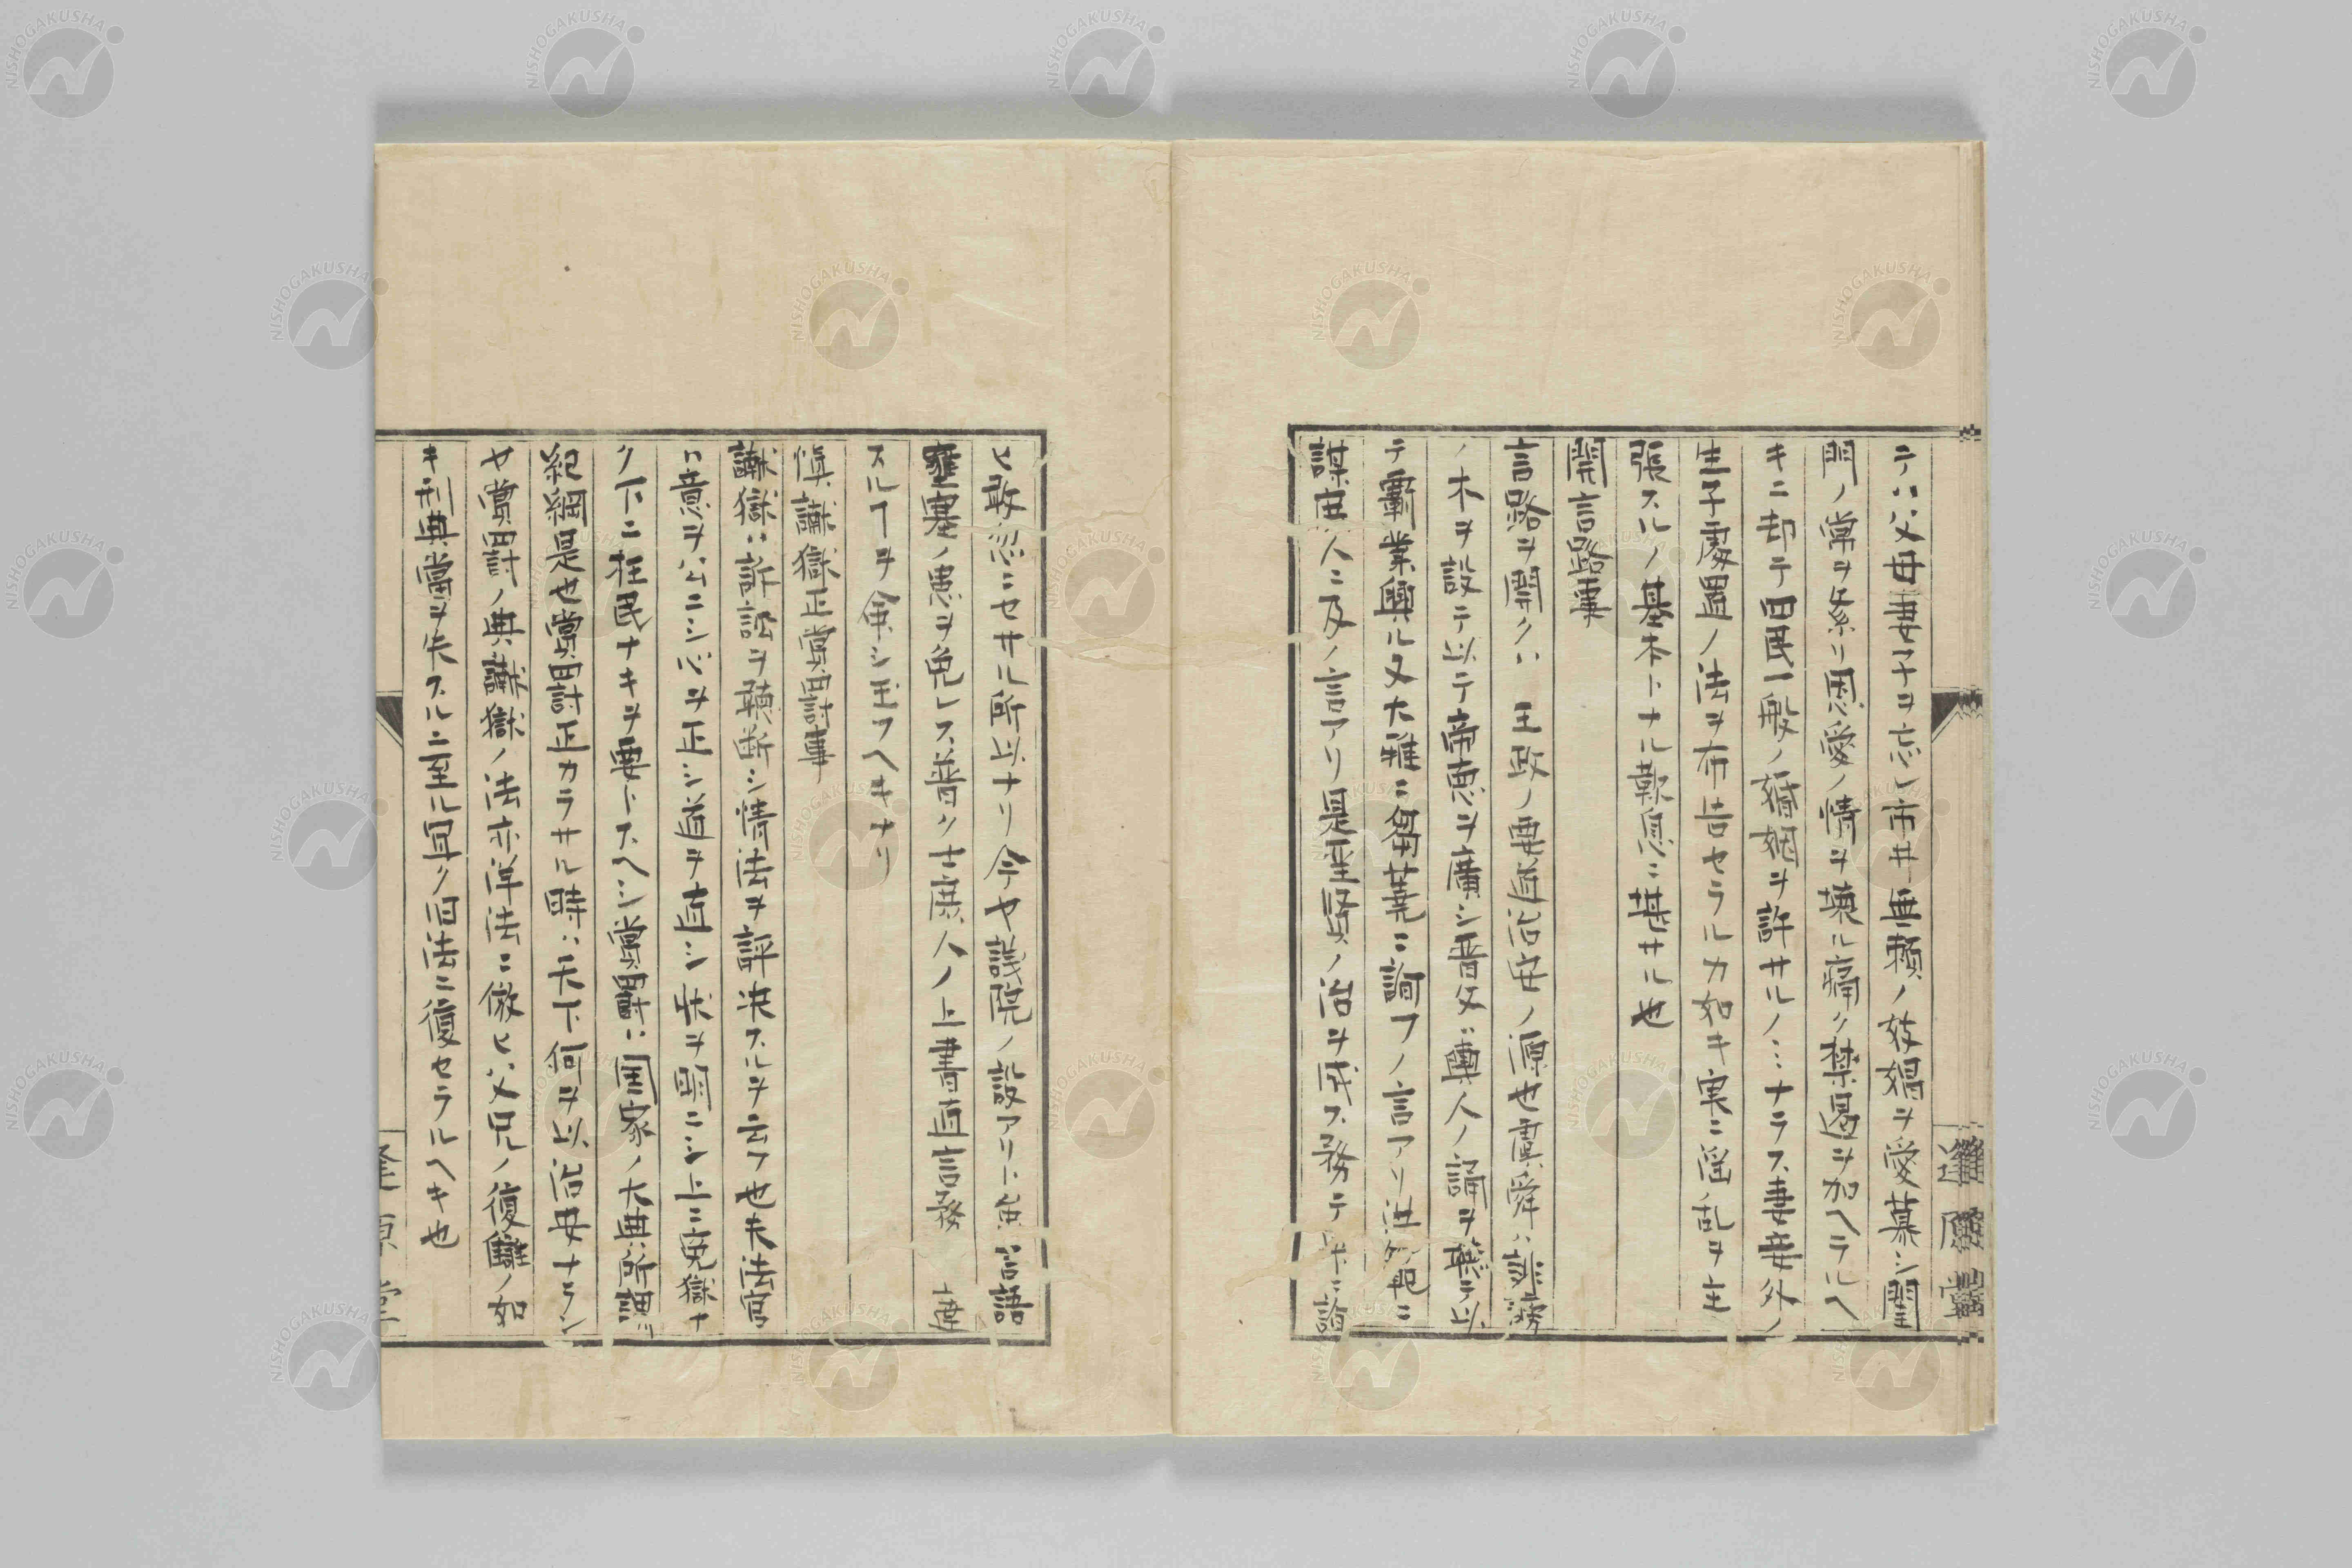 テハ父母妻子ヲ忘レ市井無頼ノ妓娼ヲ愛慕シ閨
門ノ常ヲ紊リ恩愛ノ情ヲ壊ル痛ク禁遏ヲ加ヘラルヘ
キニ却テ田民一般ノ婚姻ヲ許サルノミナラス妻妾外ノ
生子處置ノ法ヲ布告セラルカ如キ実ニ淫乱ヲ主
張スルノ基本トナル歎息ニ堪サル也
開言路事
言路ヲ開クハ 王政ノ要道治安ノ源也虞舜ハ誹謗
ノ木ヲ設テ以テ帝恵ヲ廣シ晋文ハ輿人ノ誦ヲ聴テ以
テ霸業興ル又大雅ニ芻蕘ニ詢フノ言アリ洪範ニ
謀庶人ニ及ノ言アリ是聖賢ノ治ヲ成ス務テ衆ニ諮
ヒ敢忽ニセサル所以ナリ今ヤ議院ノ設アリト 言語
壅塞ノ患ヲ免レス普ク士庶人ノ上書直言務
スルヿヲ余シ玉フヘキナリ
慎讞獄正賞罰事
讞獄ハ訴訟ヲ聴断シ情法ヲ評決スルヲ云フ也夫法官
ハ意ヲ公ニシ心ヲ正シ道ヲ直シ状ヲ明ニシ上ニ寃獄ナ
ク下ニ枉民ナキヲ要トスヘシ賞罰ハ国家ノ大典所謂
紀綱是也賞罰正カラサル時ハ天下何ヲ以治安ナラン
ヤ賞罰ノ典讞獄ノ法亦洋法ニ倣ヒ父兄ノ復讎ノ如
キ刑典當ヲ失スルニ至ル冝ク旧法ニ復セラルヘキ也
逢原堂
NISHOGAKUSHA